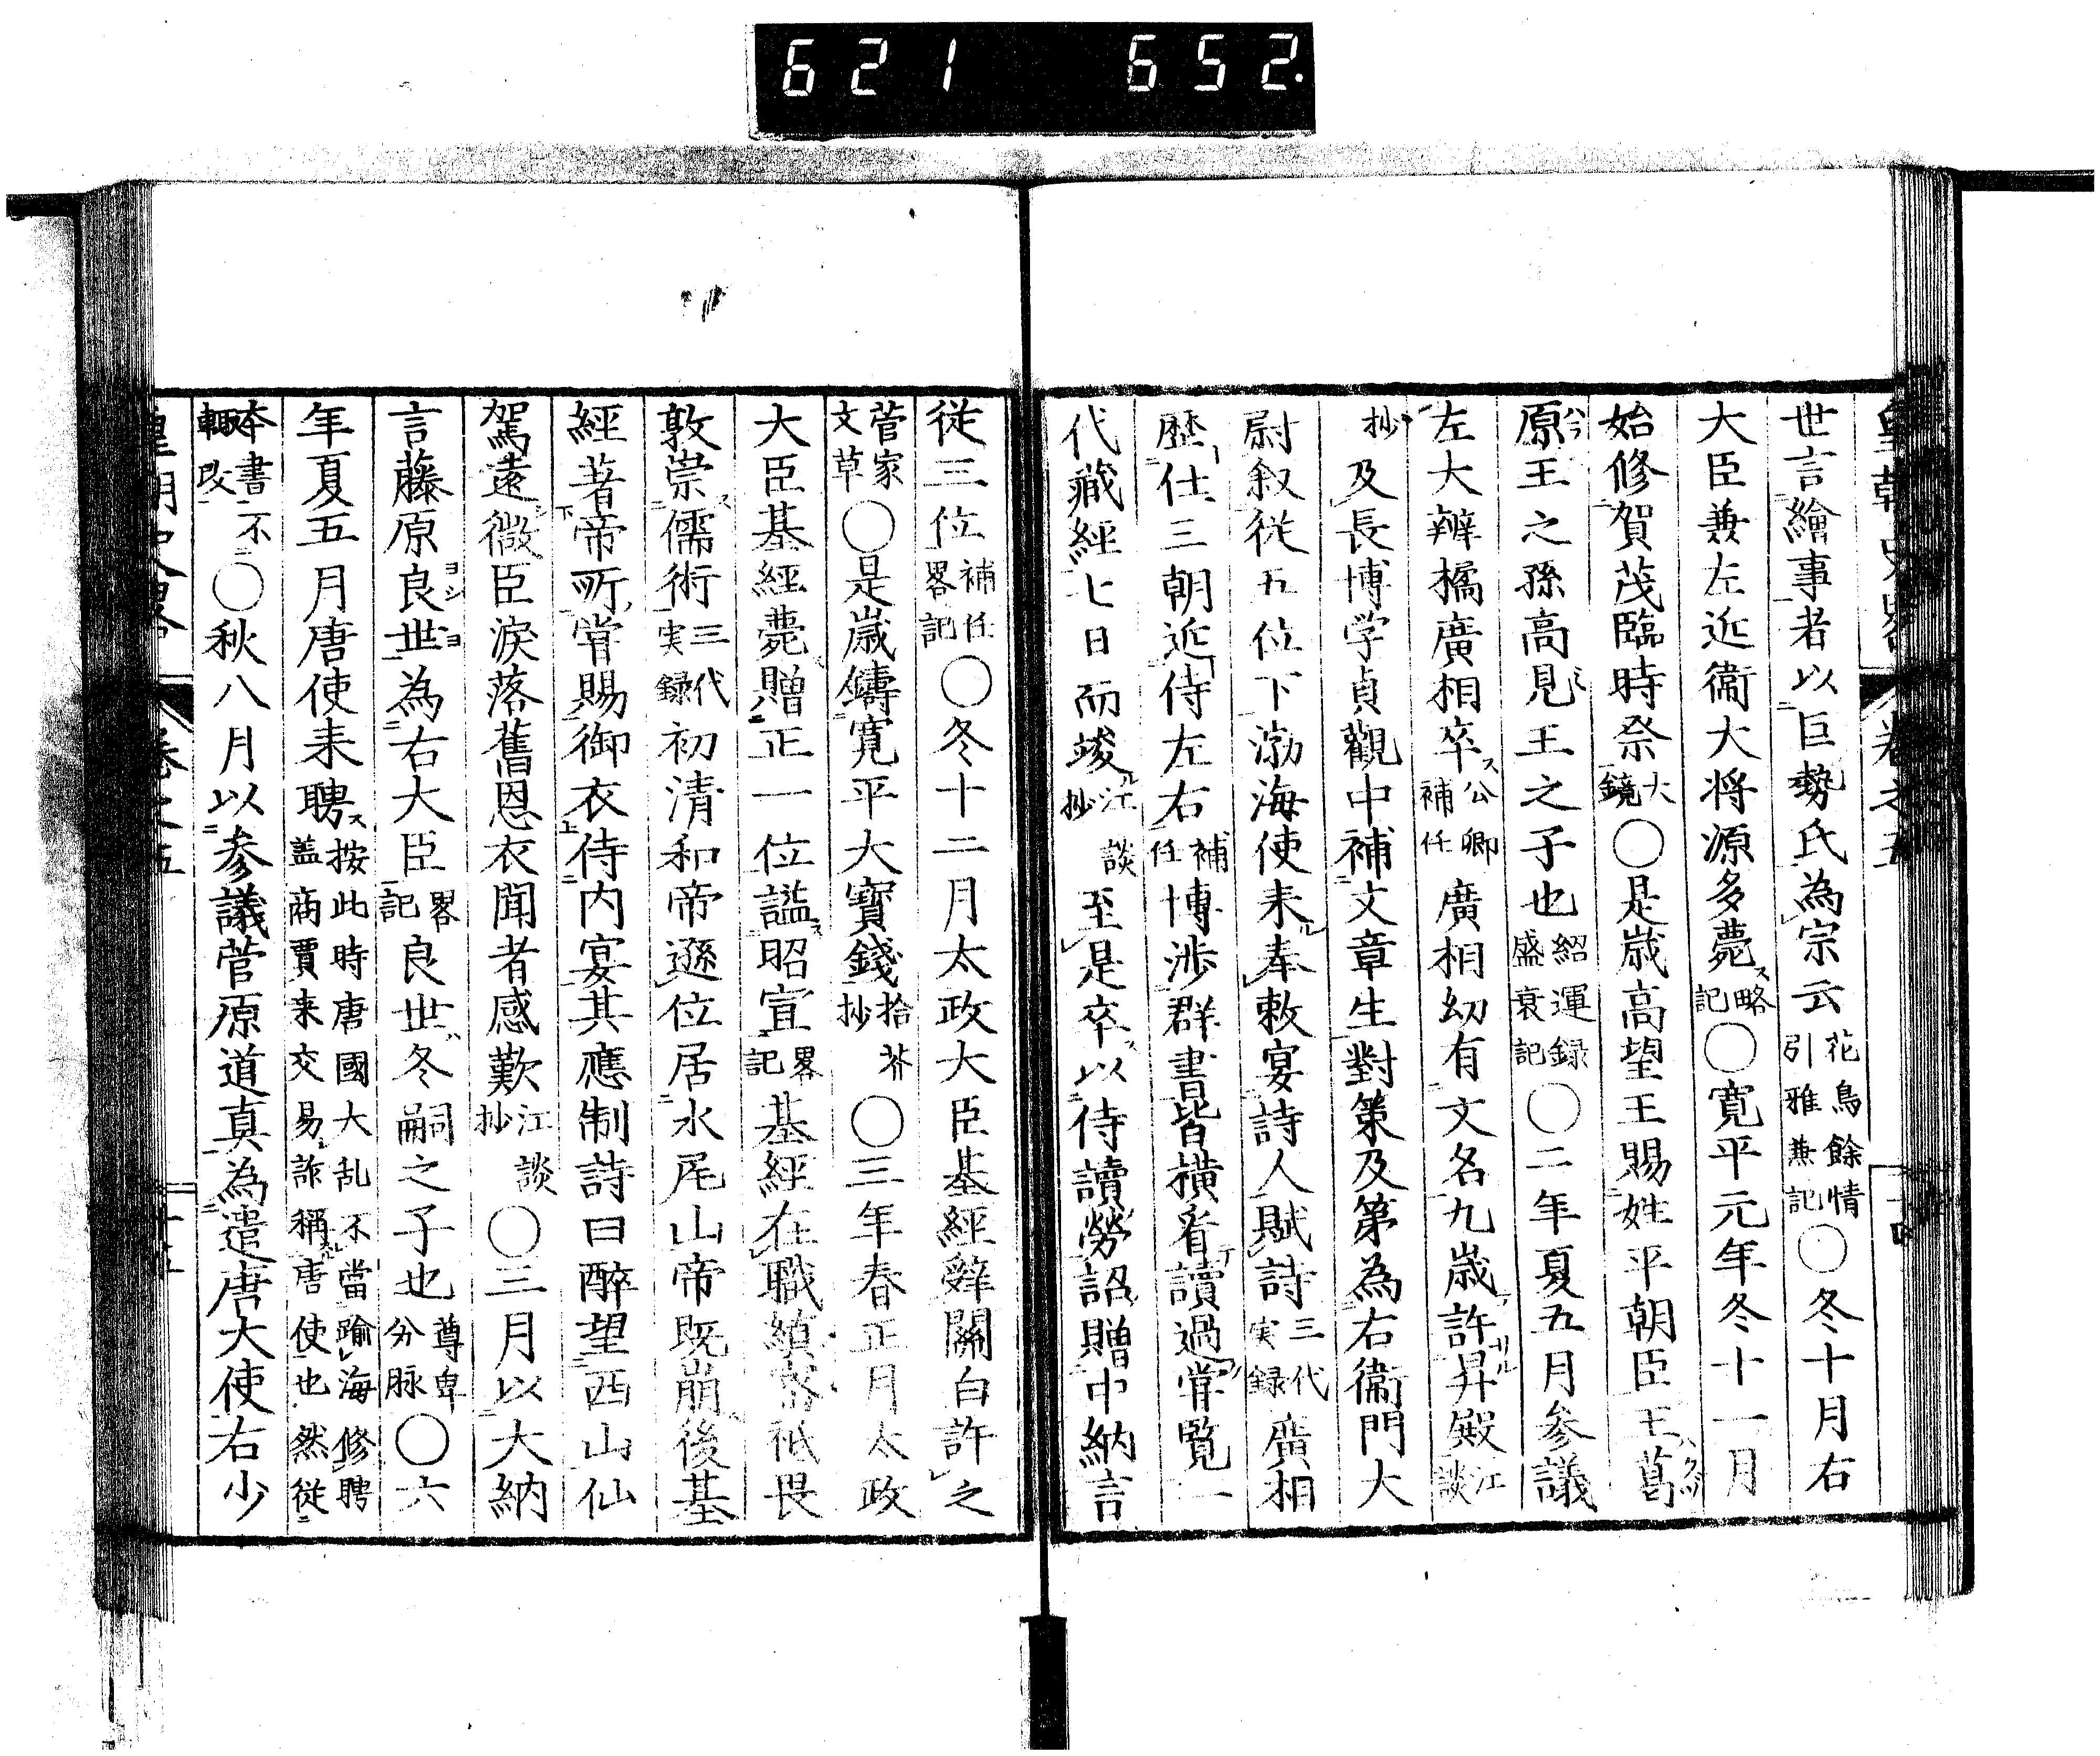 621 652.
皇朝史略 卷之五
世言繪事者以巨勢氏為宗云花鳥餘情引雅兼記〇冬十月右
大臣兼左近衞大将源多薨略記〇寛平元年冬十一月
始修賀茂臨時祭大鏡〇是歳高望王賜姓平朝臣王葛
原王之孫高見王之子也紹運録盛衰記〇二年夏五月参議
左大辨橘廣相卒公卿補任廣相幼有文名九歳許昇殿江談
抄及長博学貞觀中補文章生對策及第為右衞門大
尉叙従五位下渤海使来奉敕宴詩人賦詩三代実録廣相
歴仕三朝近侍左右補任博渉群書皆横看讀過甞覧一
代藏經七日而竣江談抄至是卒以侍讀勞詔贈中納言
従三位補任畧記〇冬十二月太政大臣基經辭關白許之
菅家文草〇是歳鑄寛平大寶錢拾芥抄〇三年春正月太政
大臣基經薨贈正一位謚昭宣畧記基經在職縝密祗畏
敦崇儒術三代実録初清和帝遜位居水尾山帝既崩後基
經著帝所甞賜御衣侍内宴其應制詩曰醉望西山仙
駕遠微臣淚落舊恩衣聞者感歎江談抄〇三月以大納
言藤原良世為右大臣畧記良世冬嗣之子也尊卑分脉〇六
年夏五月唐使来聘按此時唐國大乱不當踰海修聘盖商賈来交易詐稱唐使也然従
本書不輙改〇秋八月以参議菅原道真為遣唐大使右少